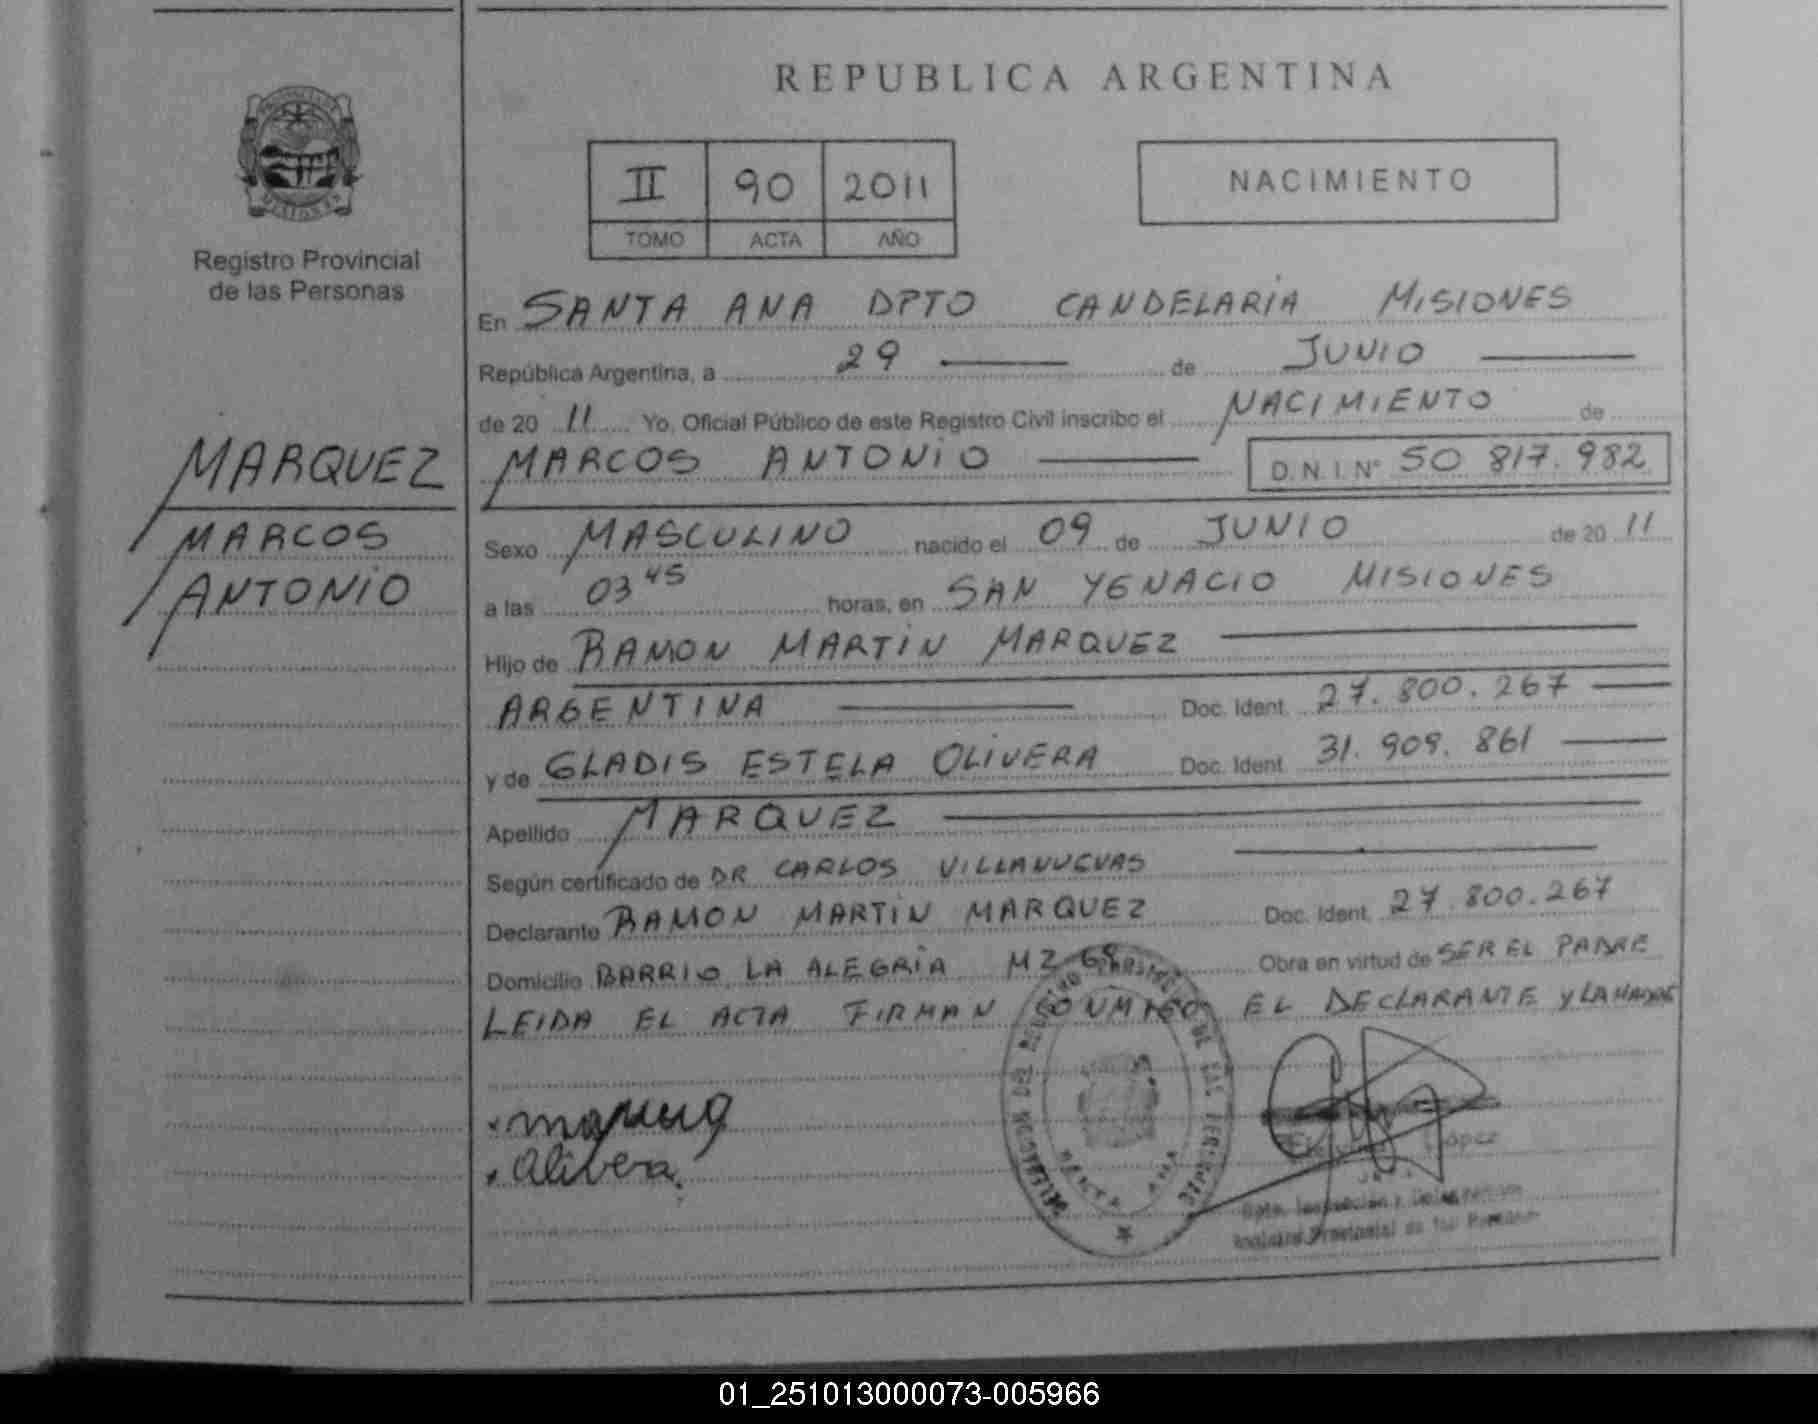 REPUBLICA ARGENTINA
MISIONES
Registro Provincial
de las Personas
II 90 2011
TOMO ACTA AÑO
NACIMIENTO
MARQUEZ
MARCOS
ANTONIO
En SANTA ANA DPTO CANDELARIA MISIONES
República Argentina, a 29 de JUNIO
de 20 11 Yo, Oficial Público de este Registro Civil inscribo el NACIMIENTO de
MARCOS ANTONIO D.N.I.N° 50 817.982
Sexo MASCULINO nacido el 09 de JUNIO de 20 11
a las 03 45 horas, en SAN YGNACIO MISIONES
Hijo de RAMON MARTIN MARQUEZ
ARGENTINA Doc. Ident. 27.800.267
y de GLADIS ESTELA OLIVERA Doc. Ident. 31.909.861
Apellido MARQUEZ
Según certificado de DR CARLOS VILLANUEVAS
Declarante RAMON MARTIN MARQUEZ Doc. Ident. 27.800.267
Domicilio BARRIO LA ALEGRIA MZ 68 Obra en virtud de SER EL PADRE
LEIDA EL ACTA FIRMAN CONMIGO EL DECLARANTE y LA MADRE
Olivera
SANTA ANA
López
Registro Provincial de las Personas
01_251013000073-005966